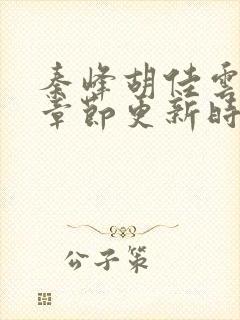 秦峰胡佳雲
章節更新時
公子策